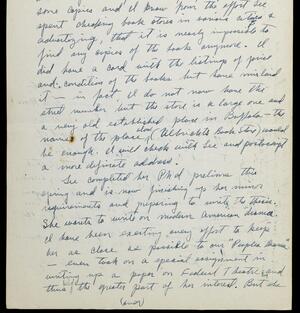 some copies and I know from the effort Lee
spent checking book stores in various cities &
advertizing, that it is nearly impossible to
find any copies of the book anymore. I
did have a card with the listings of price
and condition of the books but have mislaid
it — in fact I do not now have the
street number but the store is a large one and
a very old established place in Buffalo — the
name of the place alone (Ulbrichts Book Store) would
be enough. I will check with Lee and postscript
a more definite address.
Lee completed her Ph.d prelims this
spring and is now finishing up her minor
requirements and preparing to write the thesis.
She wants to write on modern American drama.
I have been exerting every effort to keep
her as close as possible to our "Peoples drama"
— even took on a special assignment in
writing up a paper on Federal Theatre and
thus the greater part of her interest. But she
(over)